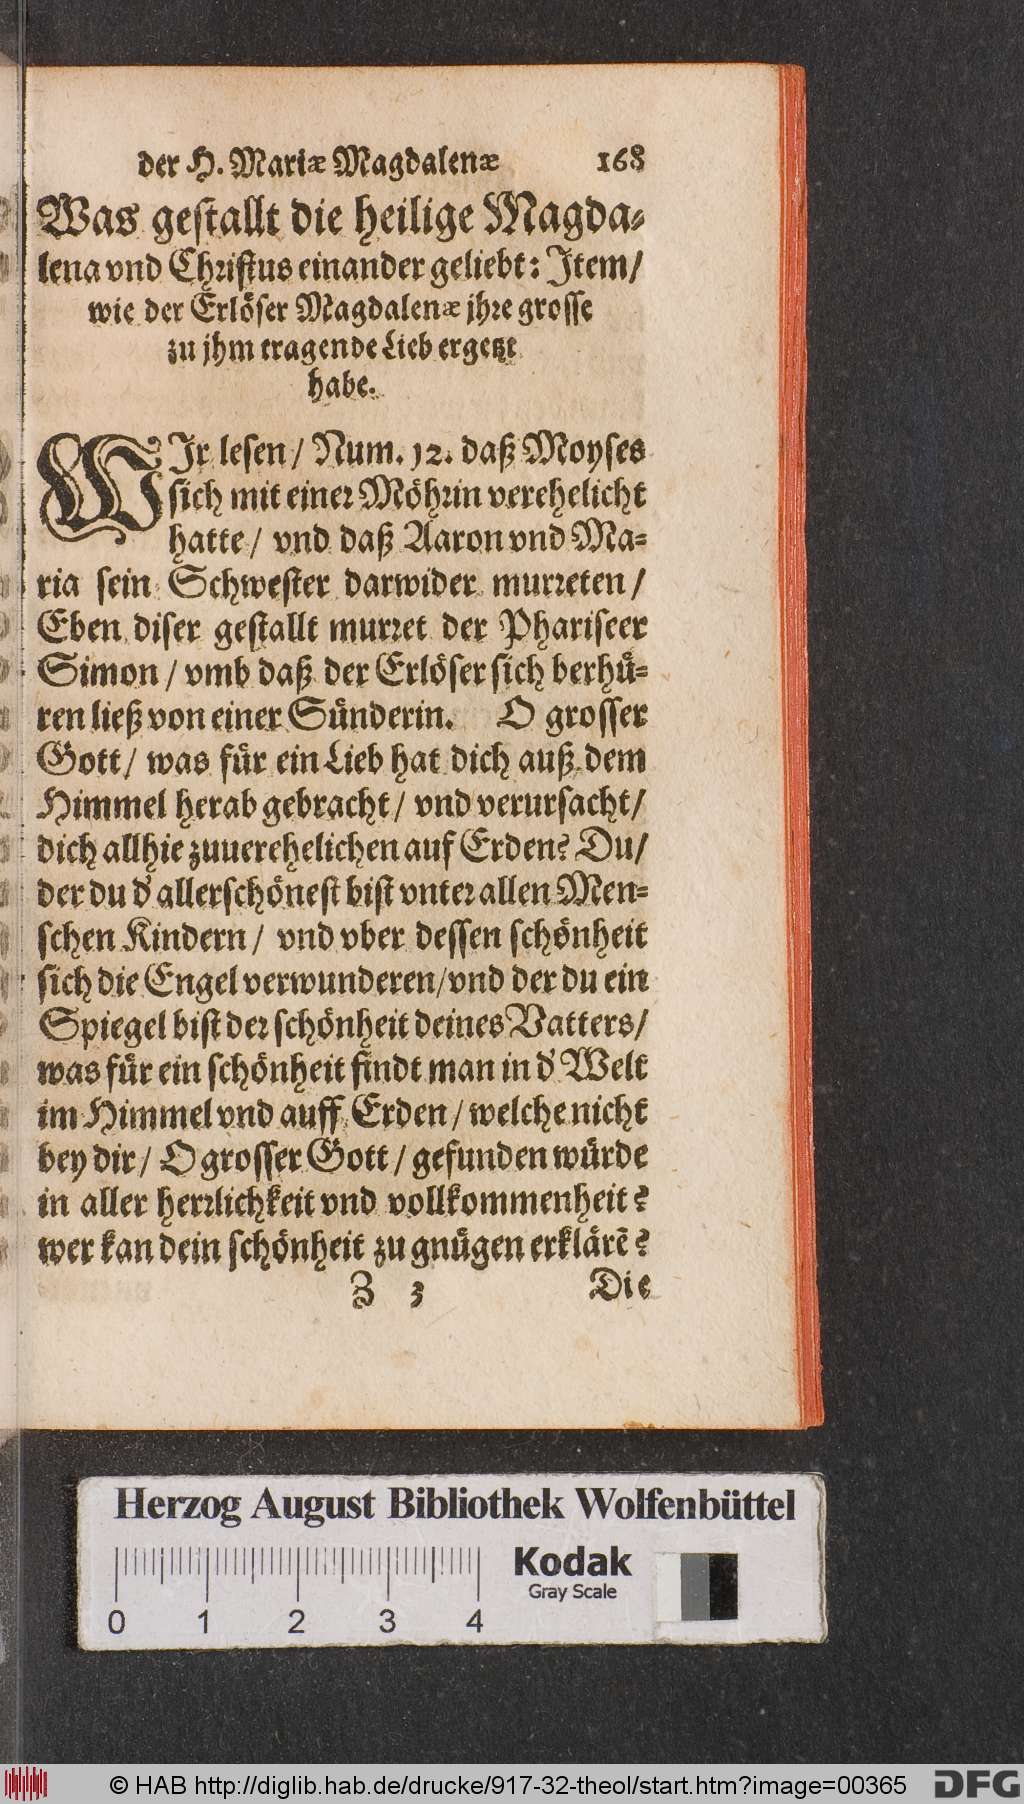 der H. Mariæ Magdalenæ 168
Was gestallt die heilige Magda-
lena vnd Christus einander geliebt: Jtem/
wie der Erlöser Magdalenæ jhre grosse
zu jhm tragende Lieb ergetzt
habe.
WJr lesen/ Num. 12. daß Moyses
sich mit einer Möhrin verehelicht
hatte/ vnd daß Aaron vnd Ma-
ria sein Schwester darwider murreten/
Eben diser gestallt murret der Phariseer
Simon/ vmb daß der Erlöser sich berhü-
ren ließ von einer Sünderin. O grosser
Gott/ was für ein Lieb hat dich auß dem
Himmel herab gebracht/ vnd verursacht/
dich allhie zuuerehelichen auf Erden? Du/
der du d' allerschönest bist vnter allen Men-
schen Kindern/ vnd vber dessen schönheit
sich die Engel verwunderen/ vnd der du ein
Spiegel bist der schönheit deines Vatters/
was für ein schönheit findt man in d' Welt
im Himmel vnd auff Erden/ welche nicht
bey dir/ O grosser Gott/ gefunden würde
in aller herrlichkeit vnd vollkommenheit?
wer kan dein schönheit zu gnügen erklärẽ?
Z 3 Die
Herzog August Bibliothek Wolfenbüttel
Kodak
Gray Scale
0 1 2 3 4
© HAB http://diglib.hab.de/drucke/917-32-theol/start.htm?image=00365
DFG